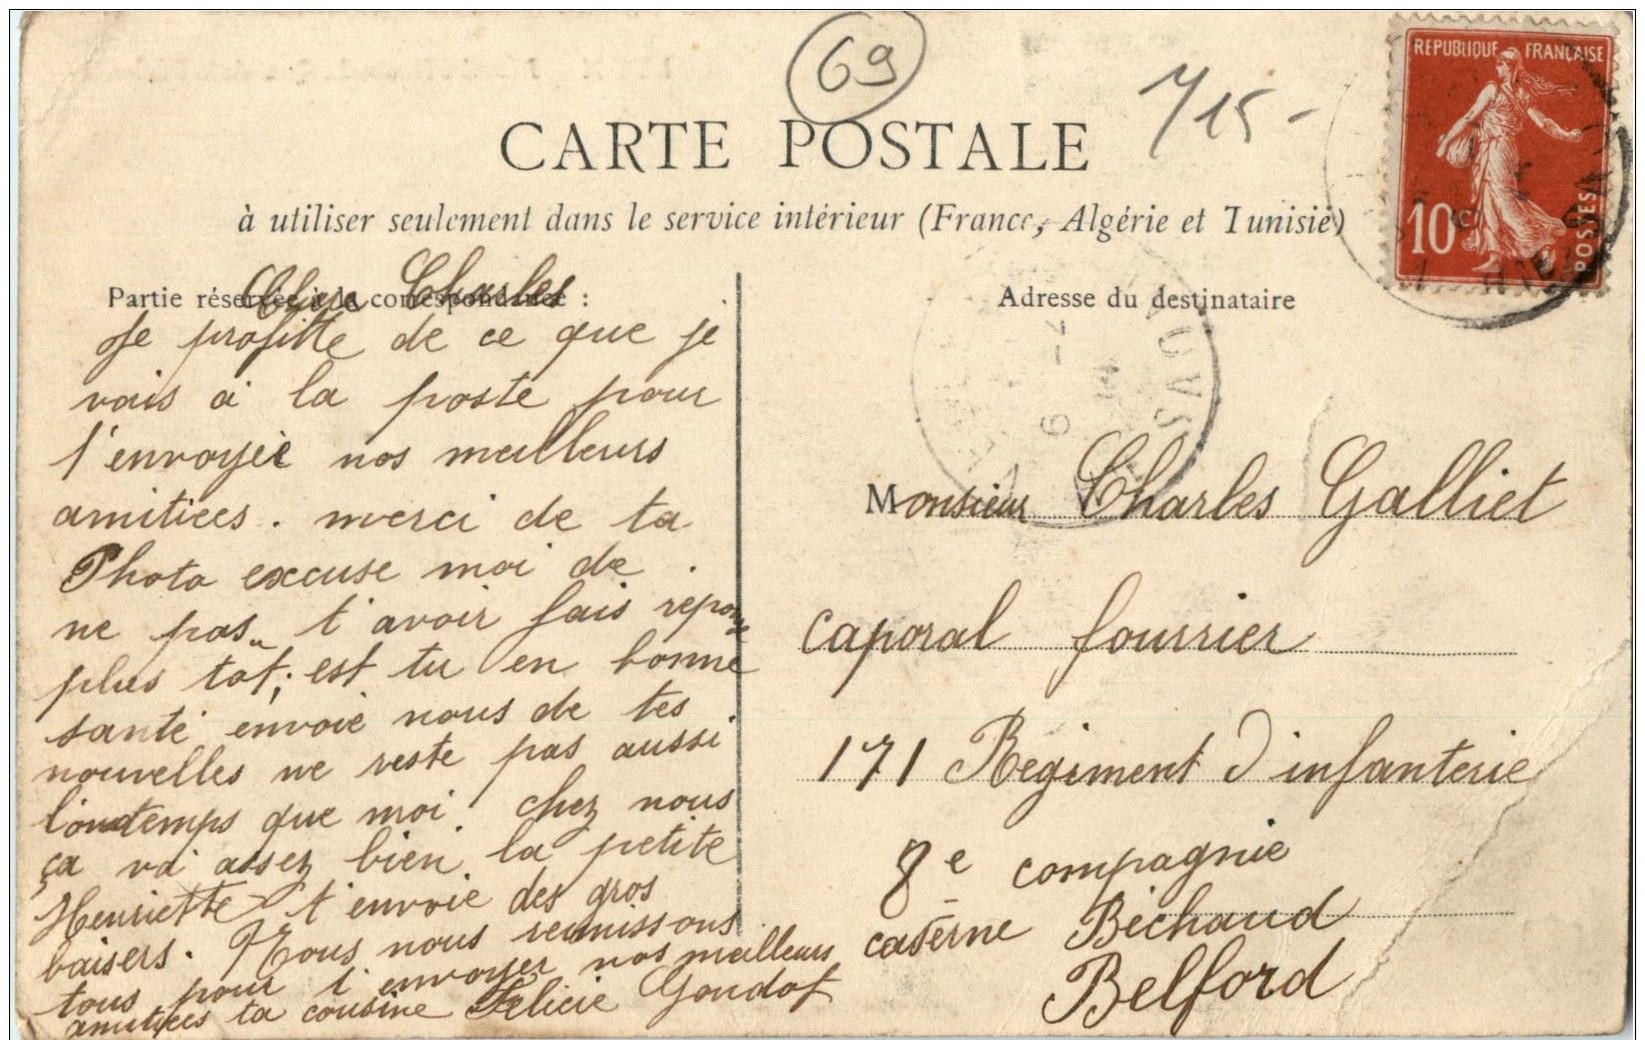 69
715-
CARTE POSTALE
à utiliser seulement dans le service intérieur (France, Algérie et Tunisie)
REPUBLIQUE FRANÇAISE
10c
POSTES
Partie réservée à la correspondance :
Cher Charles
Je profitte de ce que je
vais a la poste pour
t'envoyer nos meilleurs
amitiees. merci de ta
Photo excuse moi de
ne pas t'avoir fais reponse
plus tot; est tu en bonne
santé envoie nous de tes
nouvelles ne reste pas aussi
lontemps que moi. chez nous
ça va assez bien la petite
Henriette t'envoie des gros
baisers. Nous nous reunissons
tous pour t'envoyer nos meilleurs
amitiees ta cousine Felicie Gondof
Adresse du destinataire
Monsieur Charles Galliet
caporal fourrier
171 Regiment d'infanterie
8e compagnie
caserne Béchaud
Belford